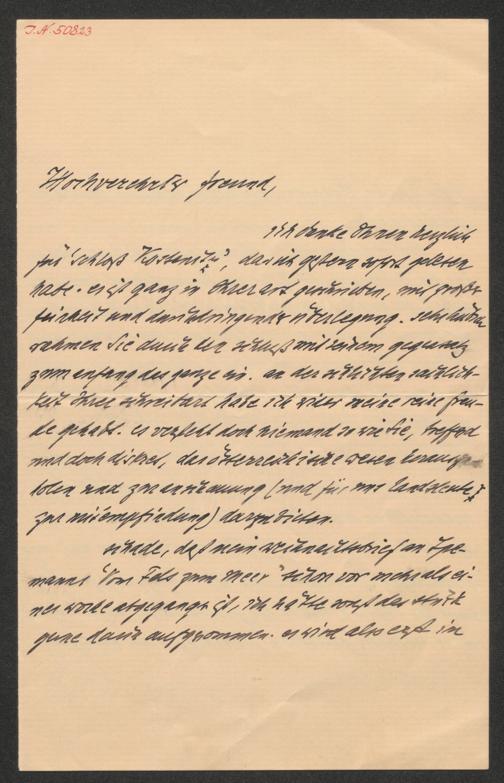 I.N. 50823
Hochverehrter freund,
ich danke Ihnen herzlich
für "schloß Kostenitz", das ich gestern sofort gelesen
habe. es ist ganz in Ihrer art geschrieben, mit großer
feinheit und überlegung. sehr
nehmen Sie durch den schluß mit seinem gegensatz
zum anfang des ganze ein. an der schlichten sachlich-
keit Ihrer schreibart habe ich wider meine reine freu-
de gehabt. es versteht doch niemand so wie Sie, treffend
und doch diskret, das österreichische wesen herauszu-
holen und zur anschauung (und für uns landsleute
zur mitempfindung) darzubieten.
schade, daß mein weihnachtsbrief an Spe-
manns "Vom Fels zum Meer" schon vor mehr als ei-
ner woche abgegangen ist. ich hätte sonst das stück
gerne darin aufgenommen. es wird also erst in